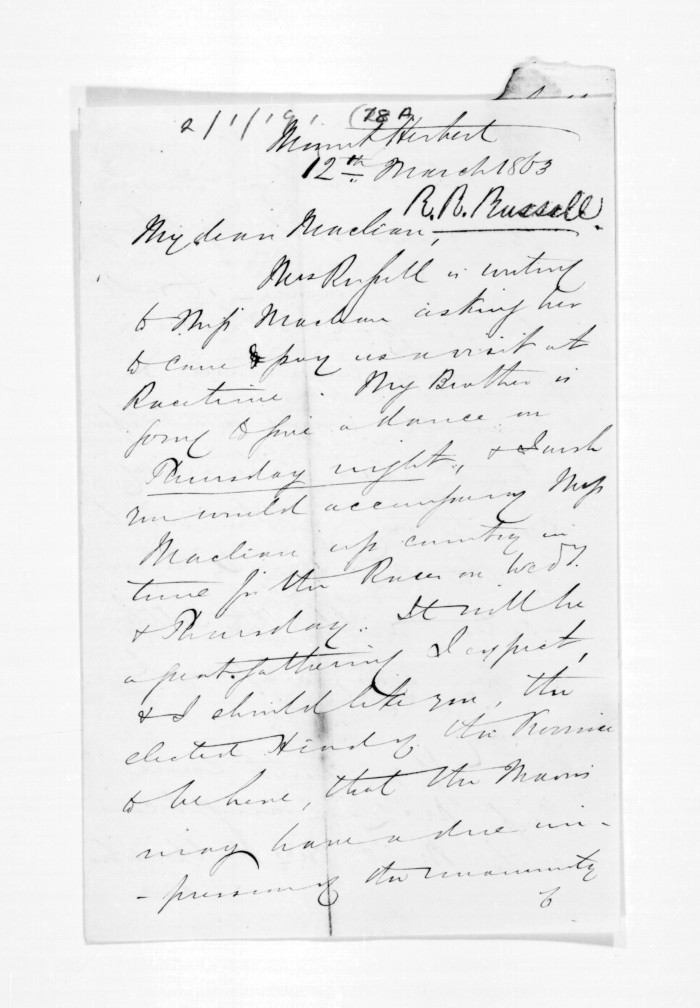 2/1/19 (78A
Mount Herbert
12th March 1863
R. R. Russell.
My dear Maclean,
Mrs Russell is writing
to Miss Maclean asking her
to come & pay us a visit at
Racetime. My Brother is
going to give a dance on
Thursday night, & I wish
you would accompany Miss
Maclean up country in
time for the Races on Wedy.
& Thursday. It will be
a great gathering I expect,
& I should like you, the
elected Head of the Province
to be here, that the Maoris
may have a due im-
-pression of the
of